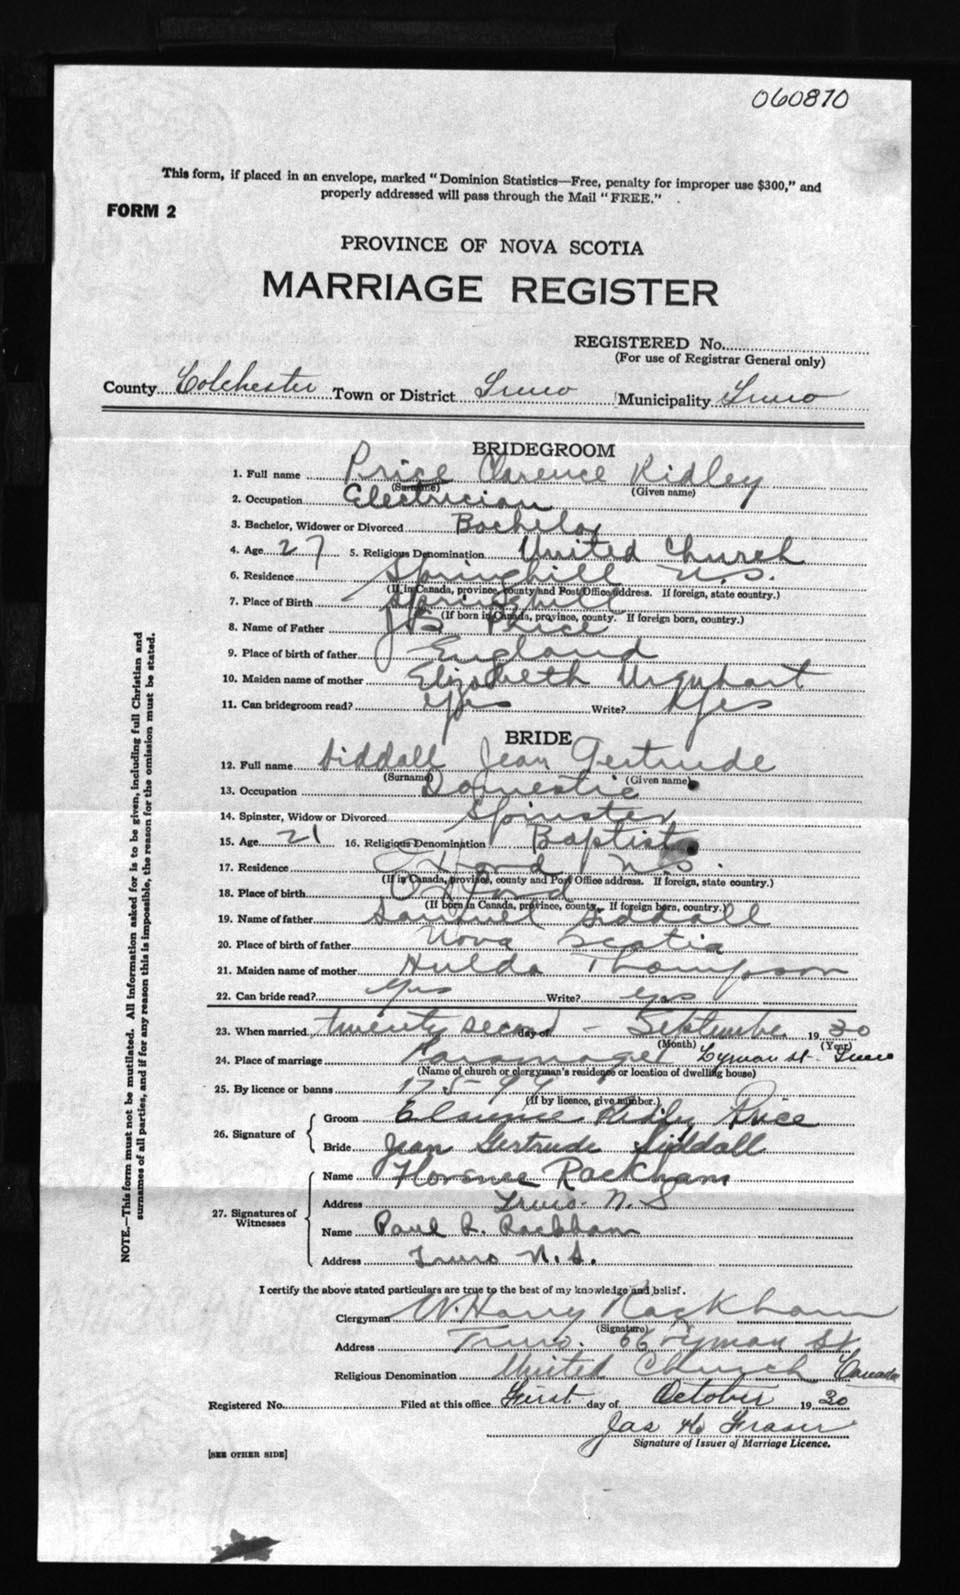 060870
This form, if placed in an envelope, marked "Dominion Statistics—Free, penalty for improper use $300," and
properly addressed will pass through the Mail "FREE."
FORM 2
PROVINCE OF NOVA SCOTIA
MARRIAGE REGISTER
REGISTERED No.
(For use of Registrar General only)
County Colchester Town or District Truro Municipality Truro
BRIDEGROOM
1. Full name Price Clarence Ridley
(Surname) (Given name)
2. Occupation Electrician
3. Bachelor, Widower or Divorced Bachelor
4. Age 27 5. Religious Denomination United Church
6. Residence Springhill N.S.
(If in Canada, province, county and Post Office address. If foreign, state country.)
7. Place of Birth Springhill
(If born in Canada, province, county. If foreign born, country.)
8. Name of Father Price
9. Place of birth of father England
10. Maiden name of mother Elizabeth Urquhart
11. Can bridegroom read? Yes Write? Yes
BRIDE
12. Full name Siddall Jean Gertrude
(Surname) (Given name)
13. Occupation Domestic
14. Spinster, Widow or Divorced Spinster
15. Age 21 16. Religious Denomination Baptist
17. Residence Oxford N.S.
(If in Canada, province, county and Post Office address. If foreign, state country.)
18. Place of birth Oxford
(If born in Canada, province, county. If foreign born, country.)
19. Name of father Samuel Siddall
20. Place of birth of father Nova Scotia
21. Maiden name of mother Hulda Thompson
22. Can bride read? Yes Write? Yes
23. When married twenty second day of - September 1930
(Month) (Year)
24. Place of marriage Parsonage Lyman St. Truro
(Name of church or clergyman's residence or location of dwelling house)
25. By licence or banns 17599
(If by licence, give number.)
26. Signature of
Groom Clarence Ridley Price
Bride Jean Gertrude Siddall
27. Signatures of Witnesses
Name Florence Rackham
Address Truro N.S
Name Paul R. Rackham
Address Truro N.S.
I certify the above stated particulars are true to the best of my knowledge and belief.
Clergyman W. Harry Rackham
(Signature)
Address Truro. 66 Lyman St
Religious Denomination United Church Canada
Registered No. Filed at this office First day of October 1930
Jas H Fraser
Signature of Issuer of Marriage Licence.
[SEE OTHER SIDE]
NOTE.—This form must not be mutilated. All information asked for is to be given, including full Christian and
surnames of all parties, and if for any reason this is impossible, the reason for the omission must be stated.